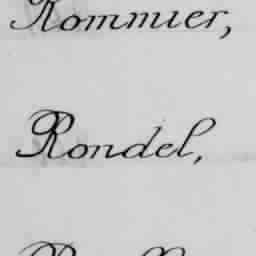 Rommier,
Rondel,